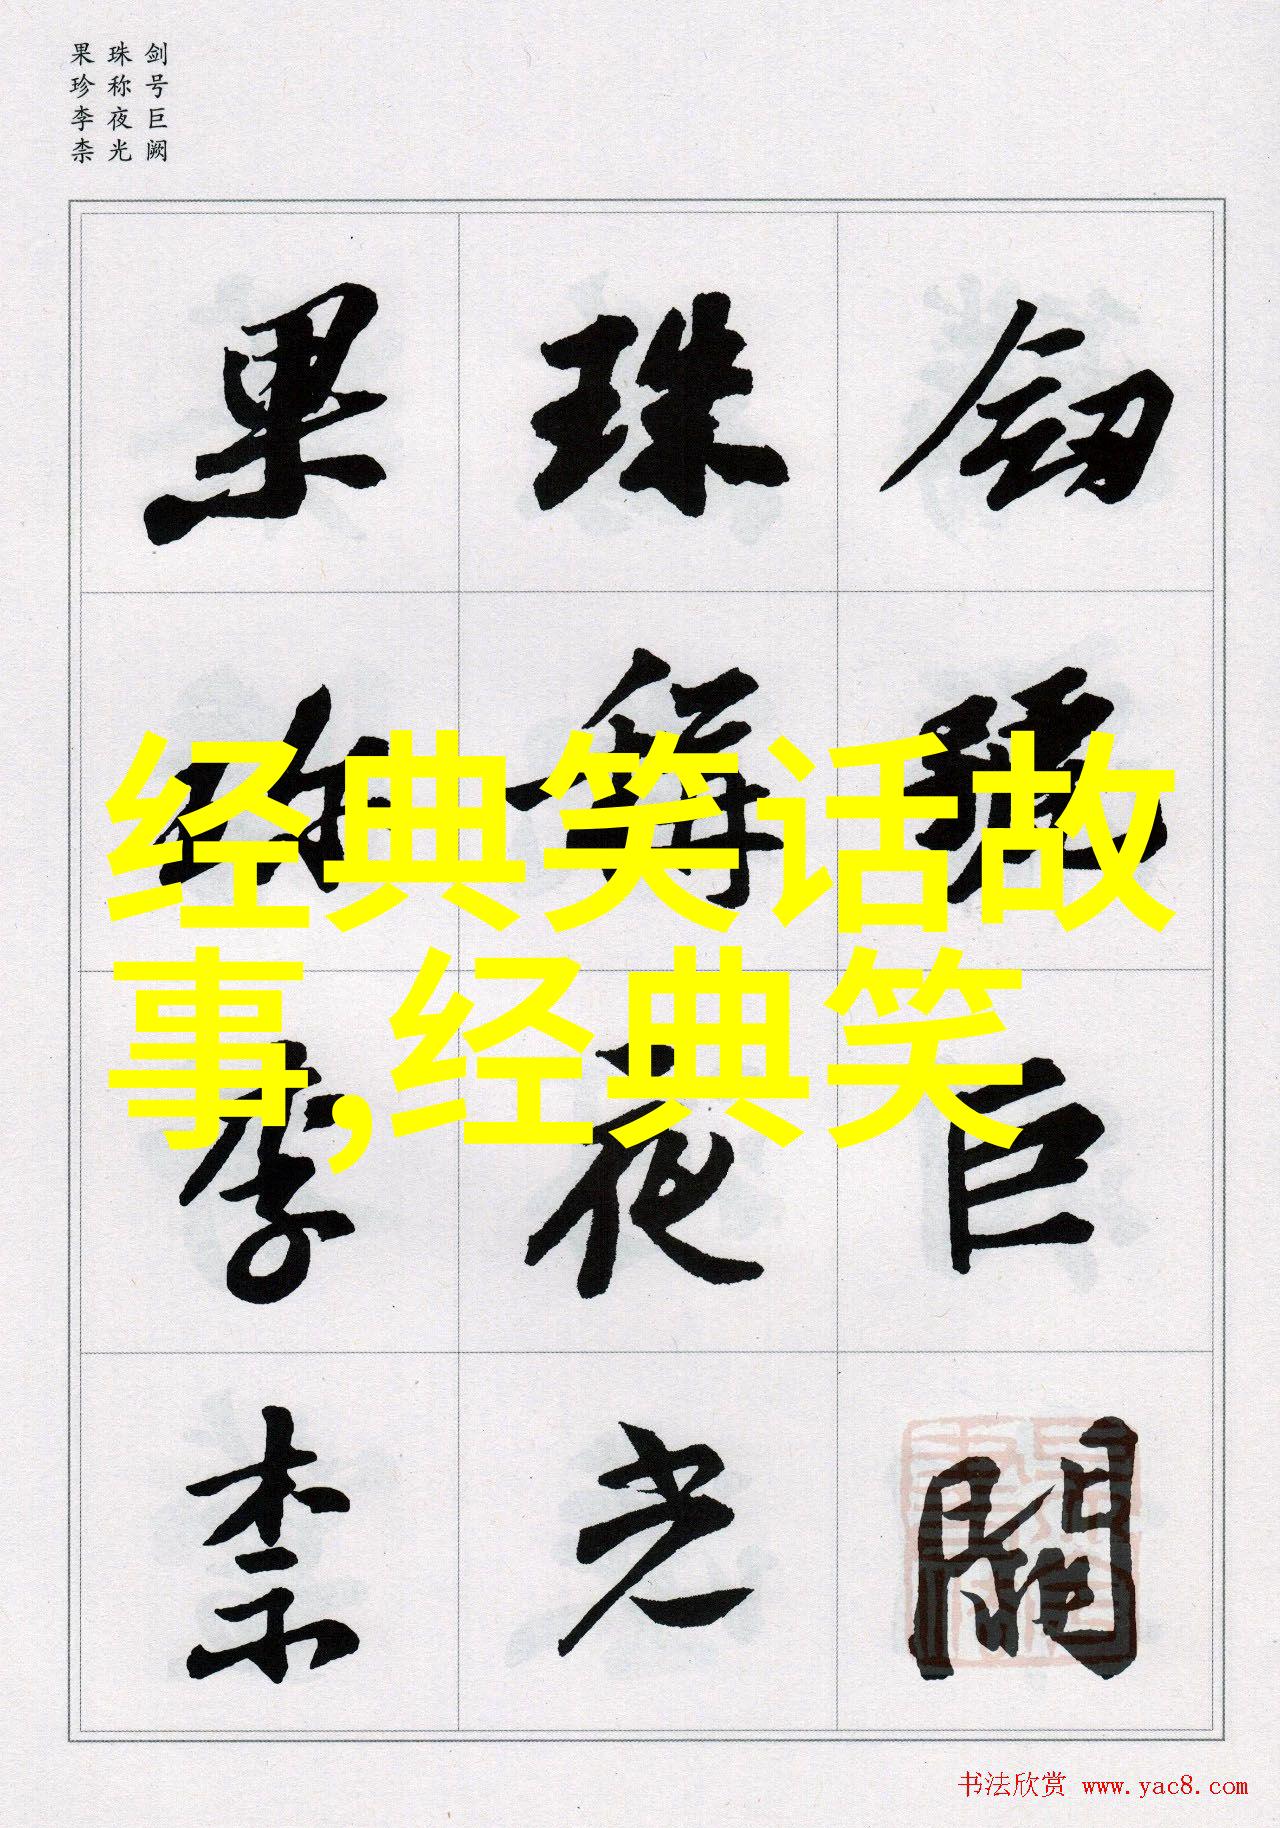 剑号巨阙
珠称夜光
果珍李柰
釰號巨闕
珠稱夜光
果珎李柰
经典笑话故
事,经典笑
书法欣赏 www.yac8.com